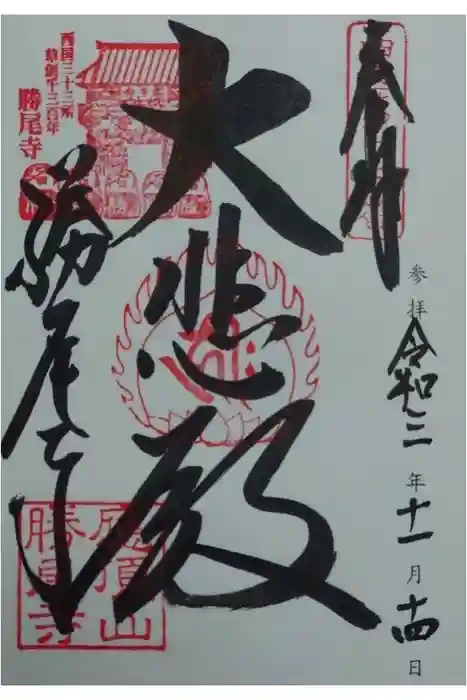 奉拝
参拝令和三年十一月十四日
大悲殿
西国三十三所
草創千三百年
勝尾寺
勝尾寺
應頂山
勝尾寺